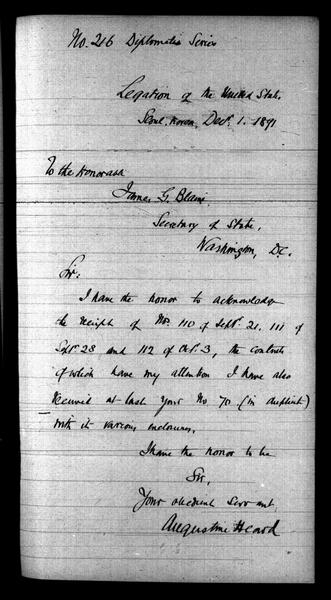 No. 216 Diplomatic Series
Legation of the United States
Seoul, Korea, Dec. 1. 1891
To the Honorable
James G. Blaine
Secretary of State,
Washington, D.C.
Sir:
I have the honor to acknowledge
the receipt of Nos. 110 of Sept. 21, 111 of
Sept. 28 and 112 of Oct. 3, the contents
of which have my attention. I have also
received at last your No 70 (in duplicate)
with its various enclosures.
I have the honor to be
Sir,
Your obedient servant,
Augustine Heard